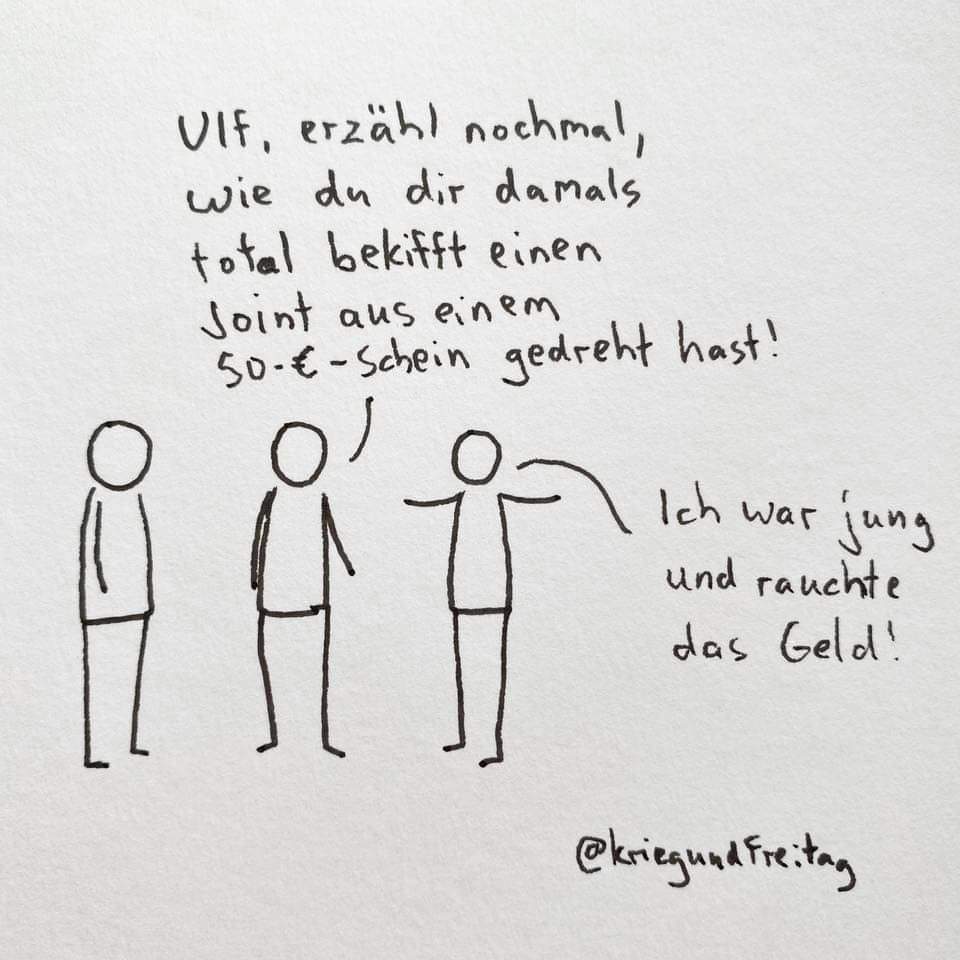 Ulf, erzähl nochmal,
wie du dir damals
total bekifft einen
Joint aus einem
50-€-Schein gedreht hast!
Ich war jung
und rauchte
das Geld!
@kriegundfreitag